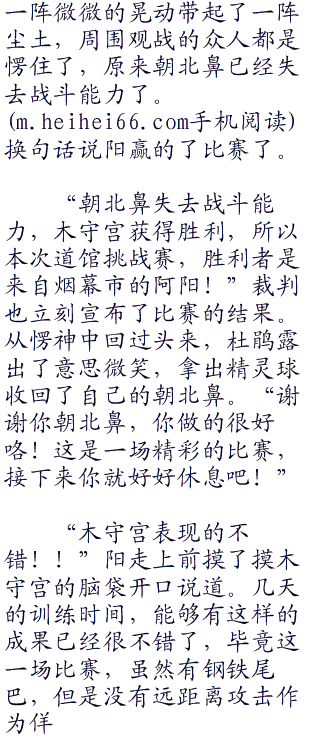 一阵微微的晃动带起了一阵
尘土，周围观战的众人都是
愣住了，原来朝北鼻已经失
去战斗能力了。
(m.heihei66.com手机阅读)
换句话说阳赢的了比赛了。
“朝北鼻失去战斗能
力，木守宫获得胜利，所以
本次道馆挑战赛，胜利者是
来自烟幕市的阿阳！”裁判
也立刻宣布了比赛的结果。
从愣神中回过头来，杜鹃露
出了意思微笑，拿出精灵球
收回了自己的朝北鼻。“谢
谢你朝北鼻，你做的很好
咯！这是一场精彩的比赛，
接下来你就好好休息吧！”
“木守宫表现的不
错！！”阳走上前摸了摸木
守宫的脑袋开口说道。几天
的训练时间，能够有这样的
成果已经很不错了，毕竟这
一场比赛，虽然有钢铁尾
巴，但是没有远距离攻击作
为佯